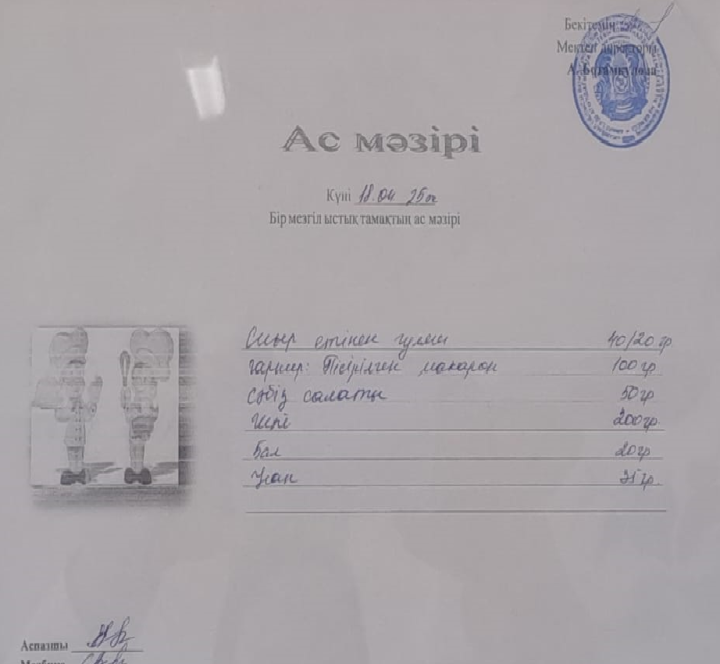 Бекітемін
Мектеп директоры
А. Ботамкулова
Ас мәзірі
Күні 18.04 25ж
Бір мезгіл ыстық тамақтың ас мәзірі
Сиыр етінен гуляш 40/20 гр
гарнир: Пісірілген макарон 100 гр
сәбіз салаты 50 гр
200 гр
Бал 20 гр
Нан 35 гр
Аспазшы